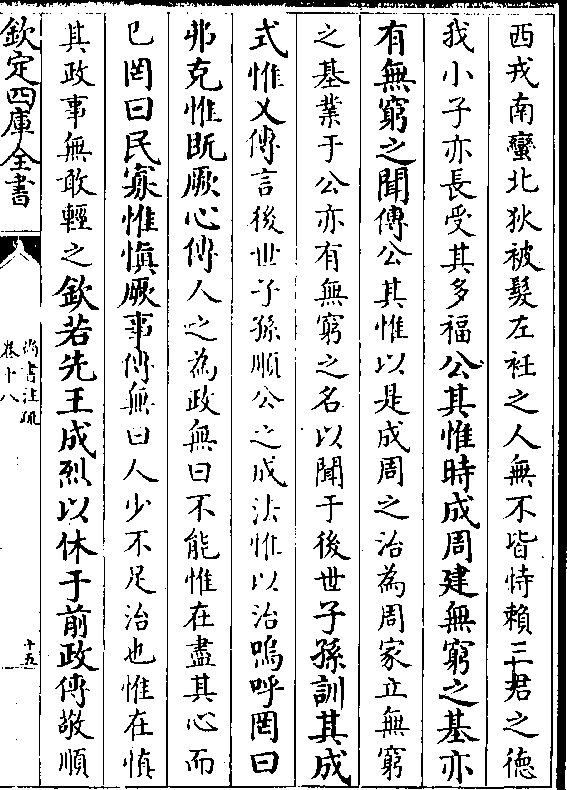 西戎南蠻北狄被髮左衽之人無不皆恃賴三君之徳
我小子亦長受其多福公其惟時成周建無窮之基亦
有無窮之聞傳公其惟以是成周之治為周家立無窮
之基業于公亦有無窮之名以聞于後世子孫訓其成
式惟乂傳言後世子孫順公之成法惟以治嗚呼罔曰
弗克惟旣厥心傳人之為政無曰不能惟在盡其心而
已罔曰民寡惟愼厥事傳無曰人少不足治也惟在慎
其政事無敢輕之欽若先王成烈以休于前政傳敬順
欽定四庫全書
尚書注疏
卷十八
十五